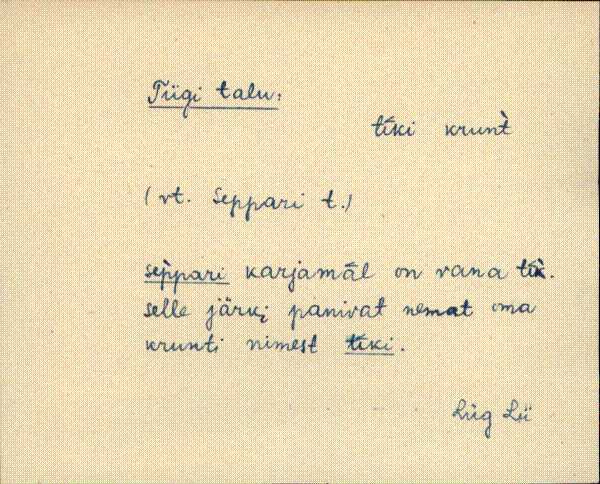 Tiigi talu:
tíki krunt̀
(vt. Seppari t.)
sep̀pari karjamāl on vana tīk̀.
selle järki panivat nemat oma
krunti nimest tíki.
Lüg Lü